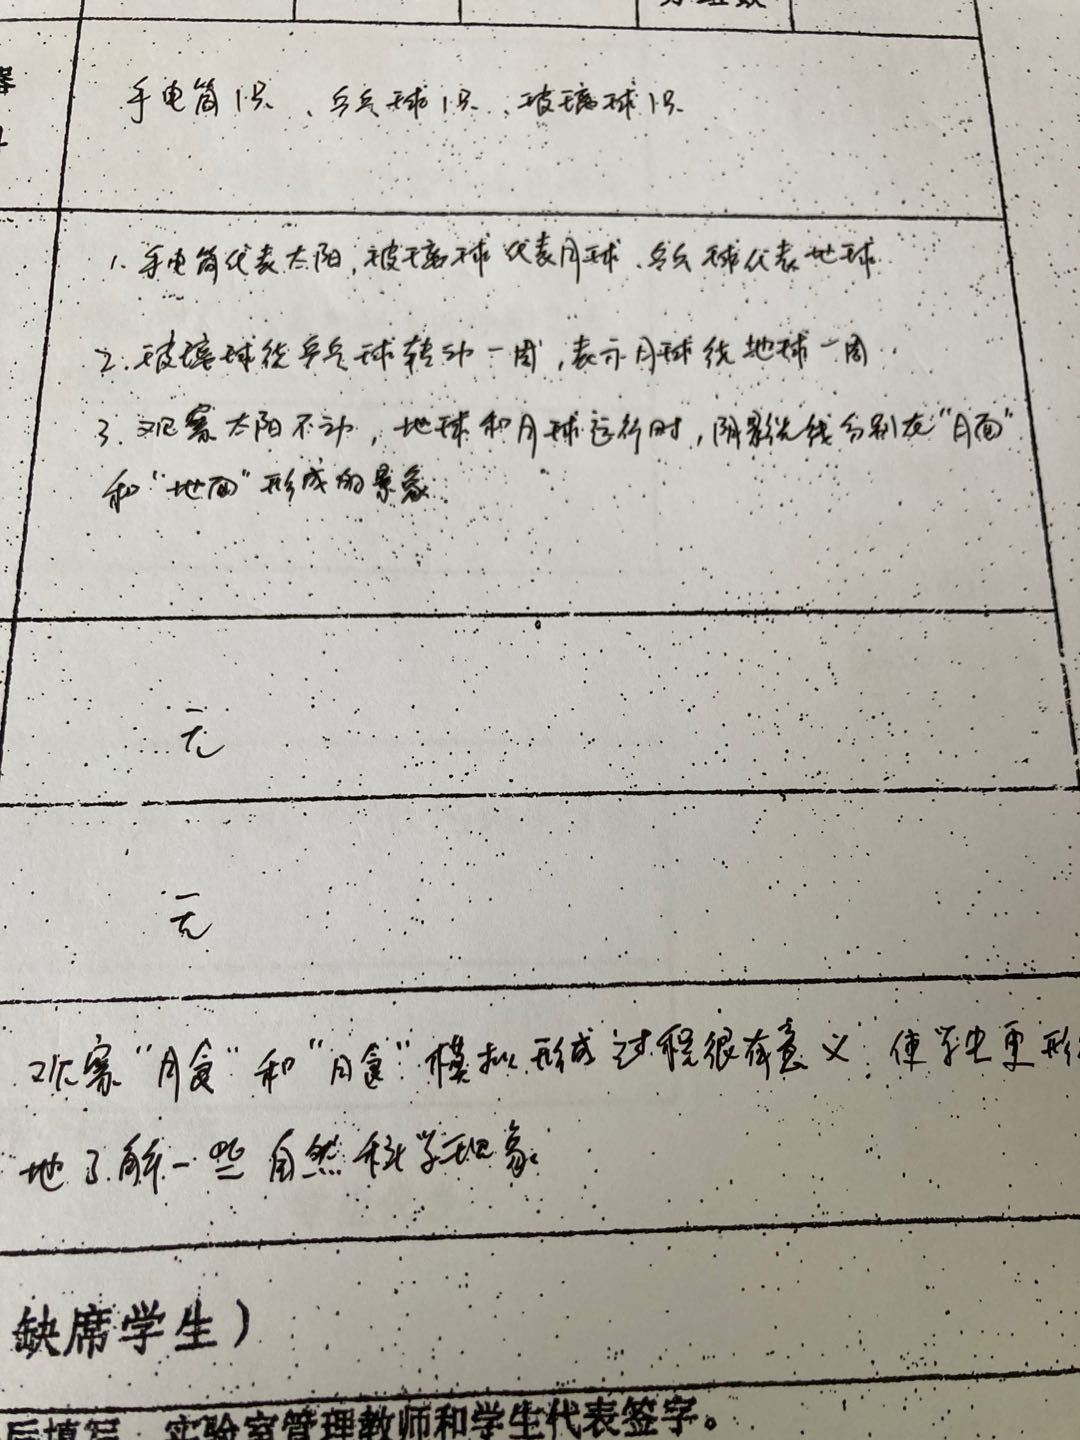 手电筒1只、乒乓球1只、玻璃球1只
1. 手电筒代表太阳,玻璃球代表月球、乒乓球代表地球
2. 玻璃球绕乒乓球转动一周,表示月球绕地球一周
3. 观察太阳不动,地球和月球运行时,阴影光线分别在"月面"
和"地面"形成的景象
无
无
观察"月食"和"月食"模拟形成过程很有意义 使学生更形
地了解一些自然科学现象
缺席学生)
后填写 实验室管理教师和学生代表签字。